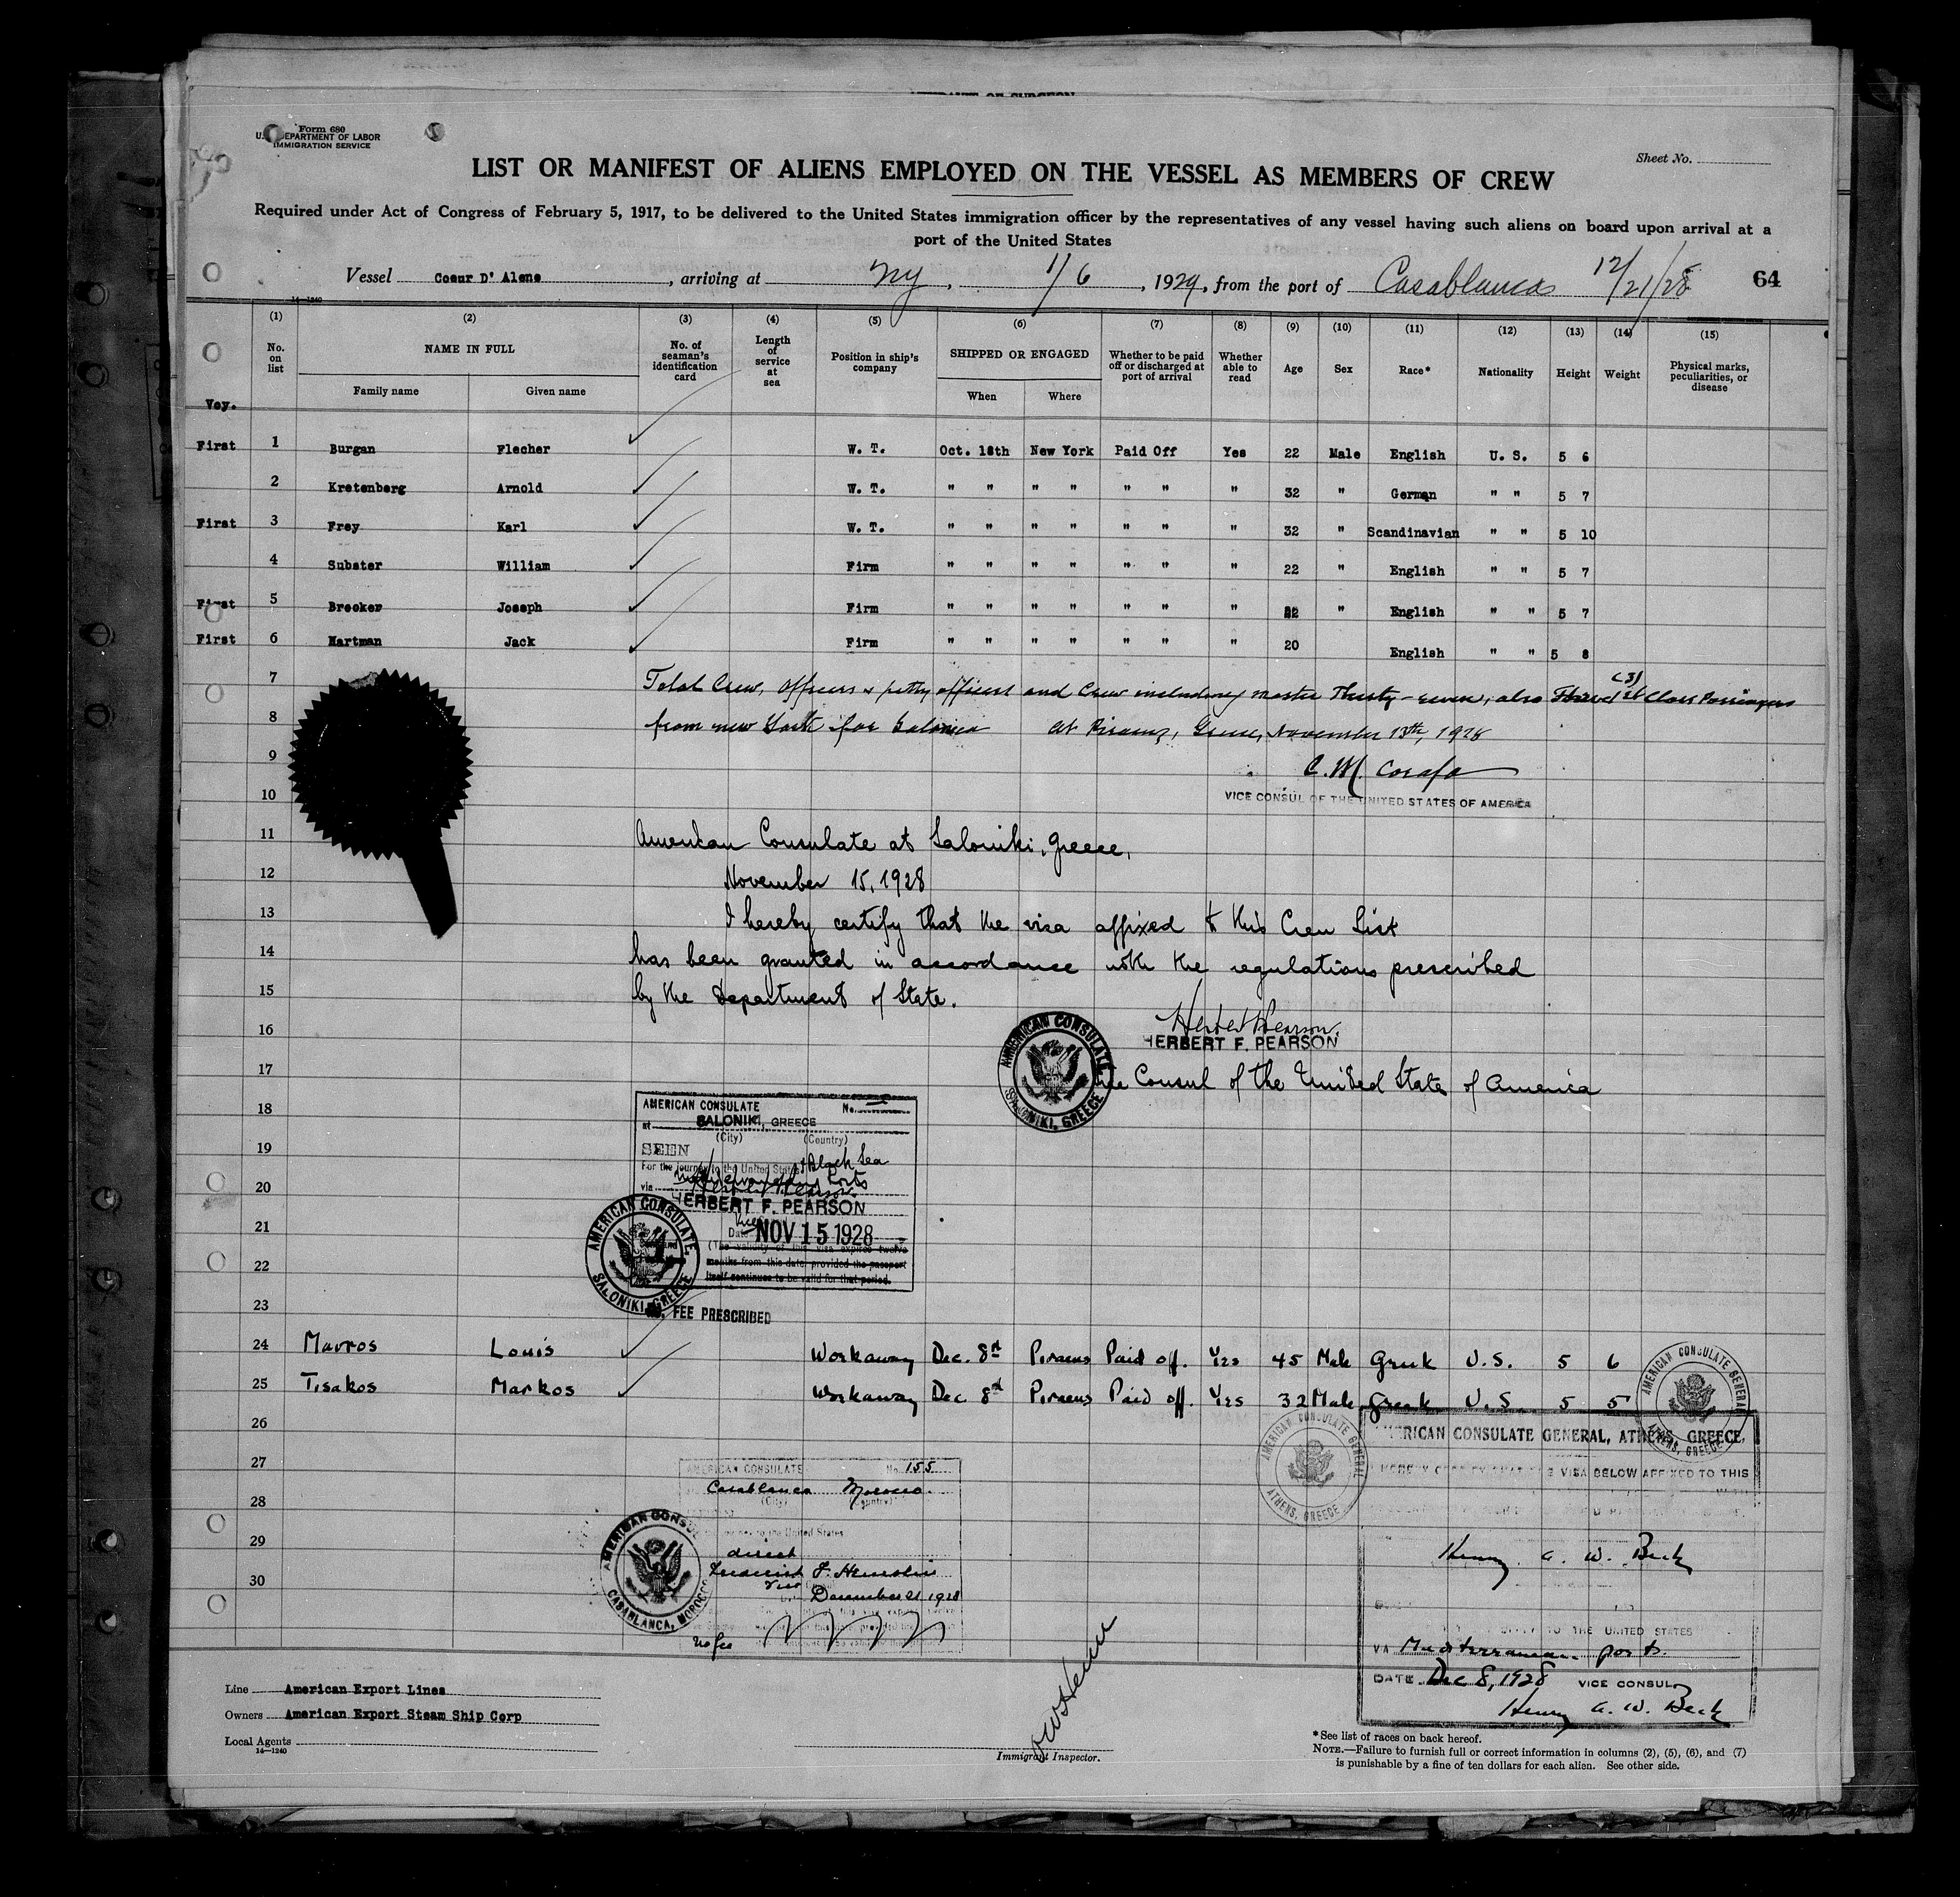 Form 680
U. DEPARTMENT OF LABOR
IMMIGRATION SERVICE
Sheet No.
LIST OR MANIFEST OF ALIENS EMPLOYED ON THE VESSEL AS MEMBERS OF CREW
Required under Act of Congress of February 5, 1917, to be delivered to the United States immigration officer by the representatives of any vessel having such aliens on board upon arrival at a
port of the United States
Vessel Coeur D' Alene, arriving at NY, 1/6, 1929, from the port of Casablanca 12/21/28 64
14—1240
(1) (2) (3) (4) (5) (6) (7) (8) (9) (10) (11) (12) (13) (14) (15)
No. on list NAME IN FULL No. of seaman's identification card Length of service at sea Position in ship's company SHIPPED OR ENGAGED Whether to be paid off or discharged at port of arrival Whether able to read Age Sex Race* Nationality Height Weight Physical marks, peculiarities, or disease
Family name Given name When Where
Voy.
First 1 Burgan Flecher W. T. Oct. 18th New York Paid Off Yes 22 Male English U. S. 5 6
2 Kretenberg Arnold W. T. " " " " " " " 32 " German " " 5 7
First 3 Frey Karl W. T. " " " " " " " 32 " Scandinavian " " 5 10
4 Subster William Firm " " " " " " " 22 " English " " 5 7
First 5 Brecker Joseph Firm " " " " " " " 22 " English " " 5 7
First 6 Hartman Jack Firm " " " " " " " 20 English " " 5 8
7 Total Crew, Officers & petty officers and Crew including master Thirty-seven, also Three (3) 1st Class Passengers
8 from New York for Salonica At Piraeus, Greece, November 13th, 1928
9 C. M. Corafa
10 VICE CONSUL OF THE UNITED STATES OF AMERICA
11 American Consulate at Saloniki, Greece,
12 November 15, 1928
13 I hereby certify that the visa affixed to this Crew List
14 has been granted in accordance with the regulations prescribed
15 by the Department of State.
16 Herbert F. Pearson
HERBERT F. PEARSON
17 Vice Consul of the United States of America
AMERICAN CONSULATE SALONIKI, GREECE
18 AMERICAN CONSULATE No.
at SALONIKI, GREECE
(City) (Country)
19 SEEN
For the journey to the United States + Black Sea
20 via Ports
HERBERT F. PEARSON
21 Date NOV 15 1928
(The validity of this visa expires twelve
22 months from this date, provided the passport
itself continues to be valid for that period.
AMERICAN CONSULATE, SALONIKI, GREECE
23 NO. FEE PRESCRIBED
24 Mavros Louis Workaway Dec. 8th Piraeus Paid off. Yes 45 Male Greek U.S. 5 6
25 Tisakos Markos Workaway Dec 8th Piraeus Paid off. Yes 32 Male Greek U.S. 5 5
AMERICAN CONSULATE GENERAL ATHENS, GREECE
26
AMERICAN CONSULATE GENERAL, ATHENS, GREECE.
AMERICAN CONSULATE GENERAL ATHENS, GREECE
27 AMERICAN CONSULATE No. 155
VISA BELOW AFFIXED TO THIS
Casablanca Morocco.
28 (City) (Country)
29 journey to the United States
direct
Henry A. W. Beck
AMERICAN CONSUL CASABLANCA, MOROCCO
30 December 21 1928
No fee
TO THE UNITED STATES
VIA Mediterranean ports.
DATE Dec 8, 1928 VICE CONSUL
Henry A. W. Beck
Line American Export Lines
Owners American Export Steam Ship Corp
Local Agents
14—1240
Immigrant Inspector.
*See list of races on back hereof.
NOTE.—Failure to furnish full or correct information in columns (2), (5), (6), and (7)
is punishable by a fine of ten dollars for each alien. See other side.